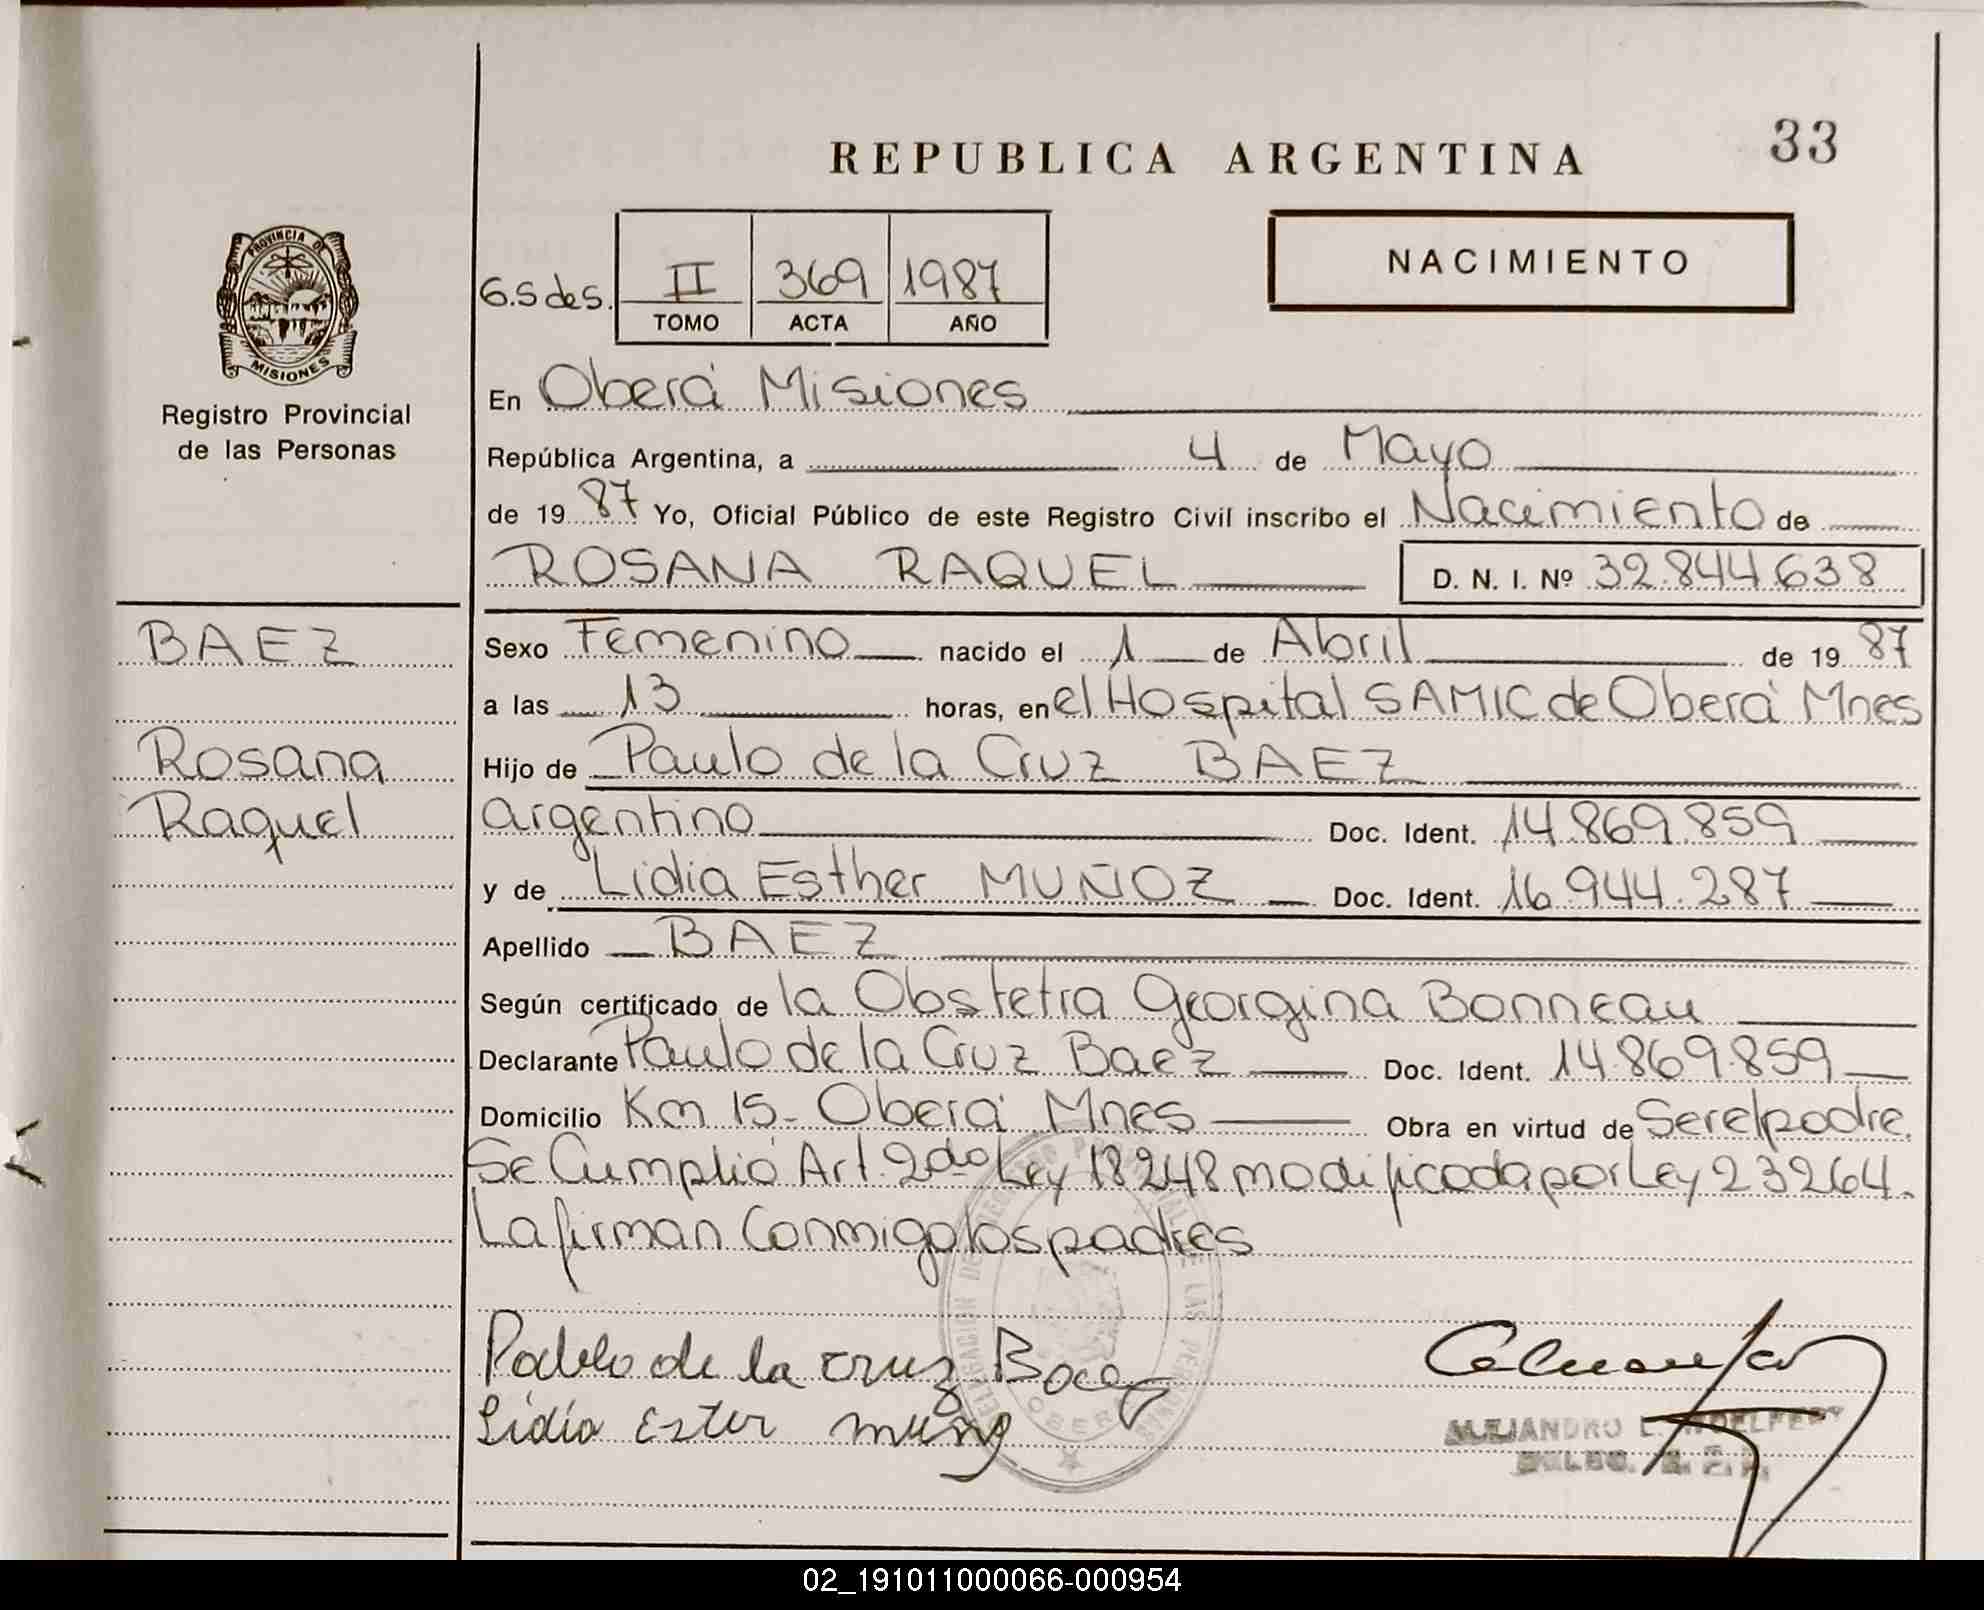 REPUBLICA ARGENTINA
33
NACIMIENTO
6.S des. II 369 1987
TOMO ACTA AÑO
PROVINCIA DE
MISIONES
Registro Provincial
de las Personas
En Oberá Misiones
República Argentina, a 4 de Mayo
de 19 87 Yo, Oficial Público de este Registro Civil inscribo el Nacimiento de
ROSANA RAQUEL D. N. I. Nº 32.844.638
BAEZ
Rosana
Raquel
Sexo Femenino nacido el 1 de Abril de 19 87
a las 13 horas, en el Hospital SAMIC de Oberá Mnes
Hijo de Paulo de la Cruz BAEZ
argentino Doc. Ident. 14.869.859
y de Lidia Esther MUÑOZ Doc. Ident. 16.944.287
Apellido BAEZ
Según certificado de la Obstetra Georgina Bonneau
Declarante Paulo de la Cruz Baez Doc. Ident. 14.869.859
Domicilio Km 15- Oberá Mnes Obra en virtud de Ser el padre.
Se Cumplió Art. 2do Ley 18248 modificada por Ley 23264.
La firman Conmigo los padres
Pablo de la cruz Baez
Lidia Ester
ALEJANDRO
OBERA
02_191011000066-000954